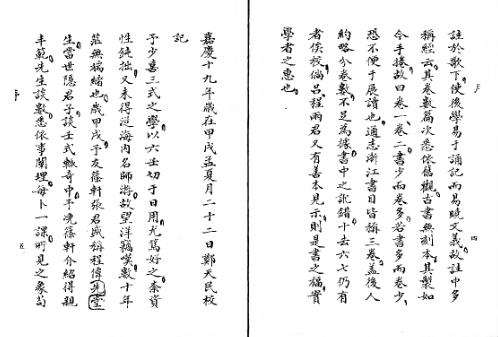 註於歌下使後學易于誦記而易曉文義故註中多
稱經云其卷數篇次悉依舊觀古書無刻本其製如
今手捲故曰卷一卷二書少而卷多若書多而卷少
恐不便于展讀也通志浙江書目皆稱三卷蓋後人
約略分卷數不足為據書中之訛錯十去六七仍有
者俟校倘呂程兩君又有善本見示則是書之福實
學者之惠也
四
嘉慶十九年歲在甲戌孟夏月二十二日鄭天民校
記
予少喜三式之學以六壬切于日用尤篤好之奈資
性鈍拙又未得逆海內名師游故望洋竊嘆數十年
茫無端緒也歲甲戌予友篠軒張君盛稱程偉堂
生當世隱君子談壬式輒奇中予凂篠軒介紹得親
丰範先生談數悉依事闡理每卜一課所見之象
五